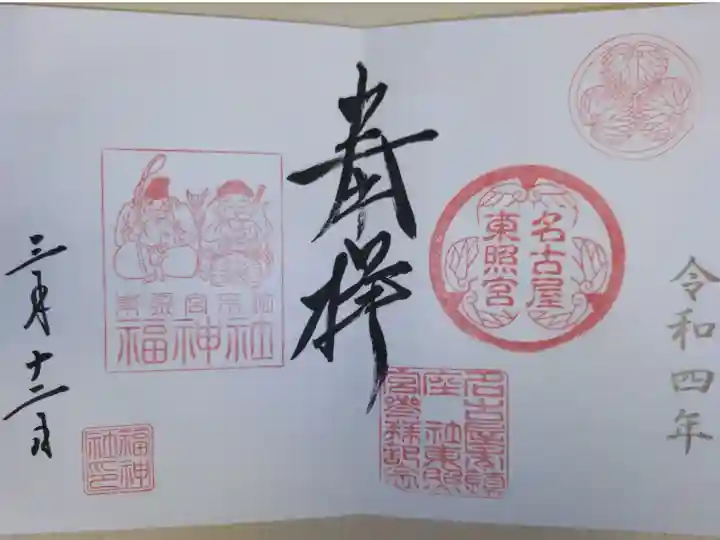 令和四年
名古屋
東照宮
名古屋東鎮
座 社東照
宮参拝記念
奉拝
福神社
福神
社印
三月十二日